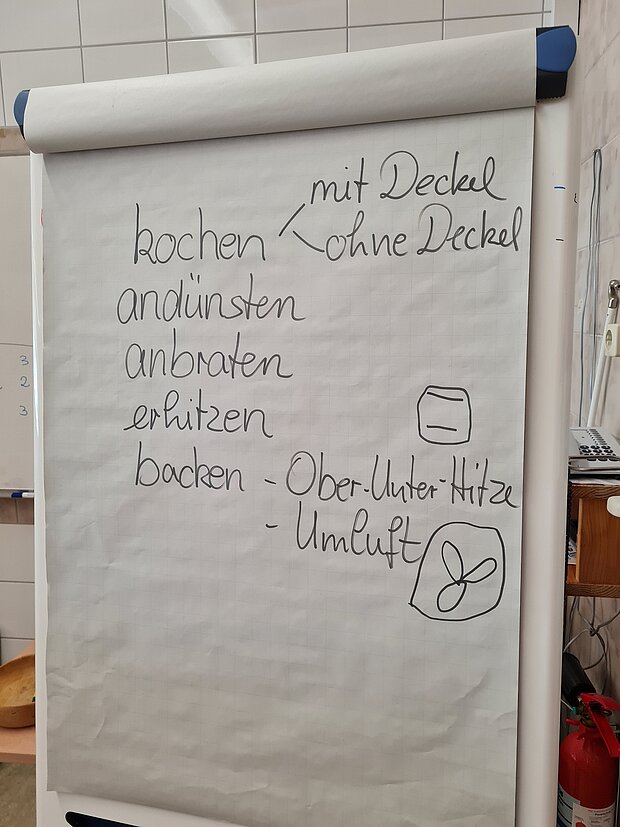 mit Deckel
kochen
ohne Deckel
andünsten
anbraten
erhitzen
backen - Ober-Unter-Hitze
- Umluft
3
2
3